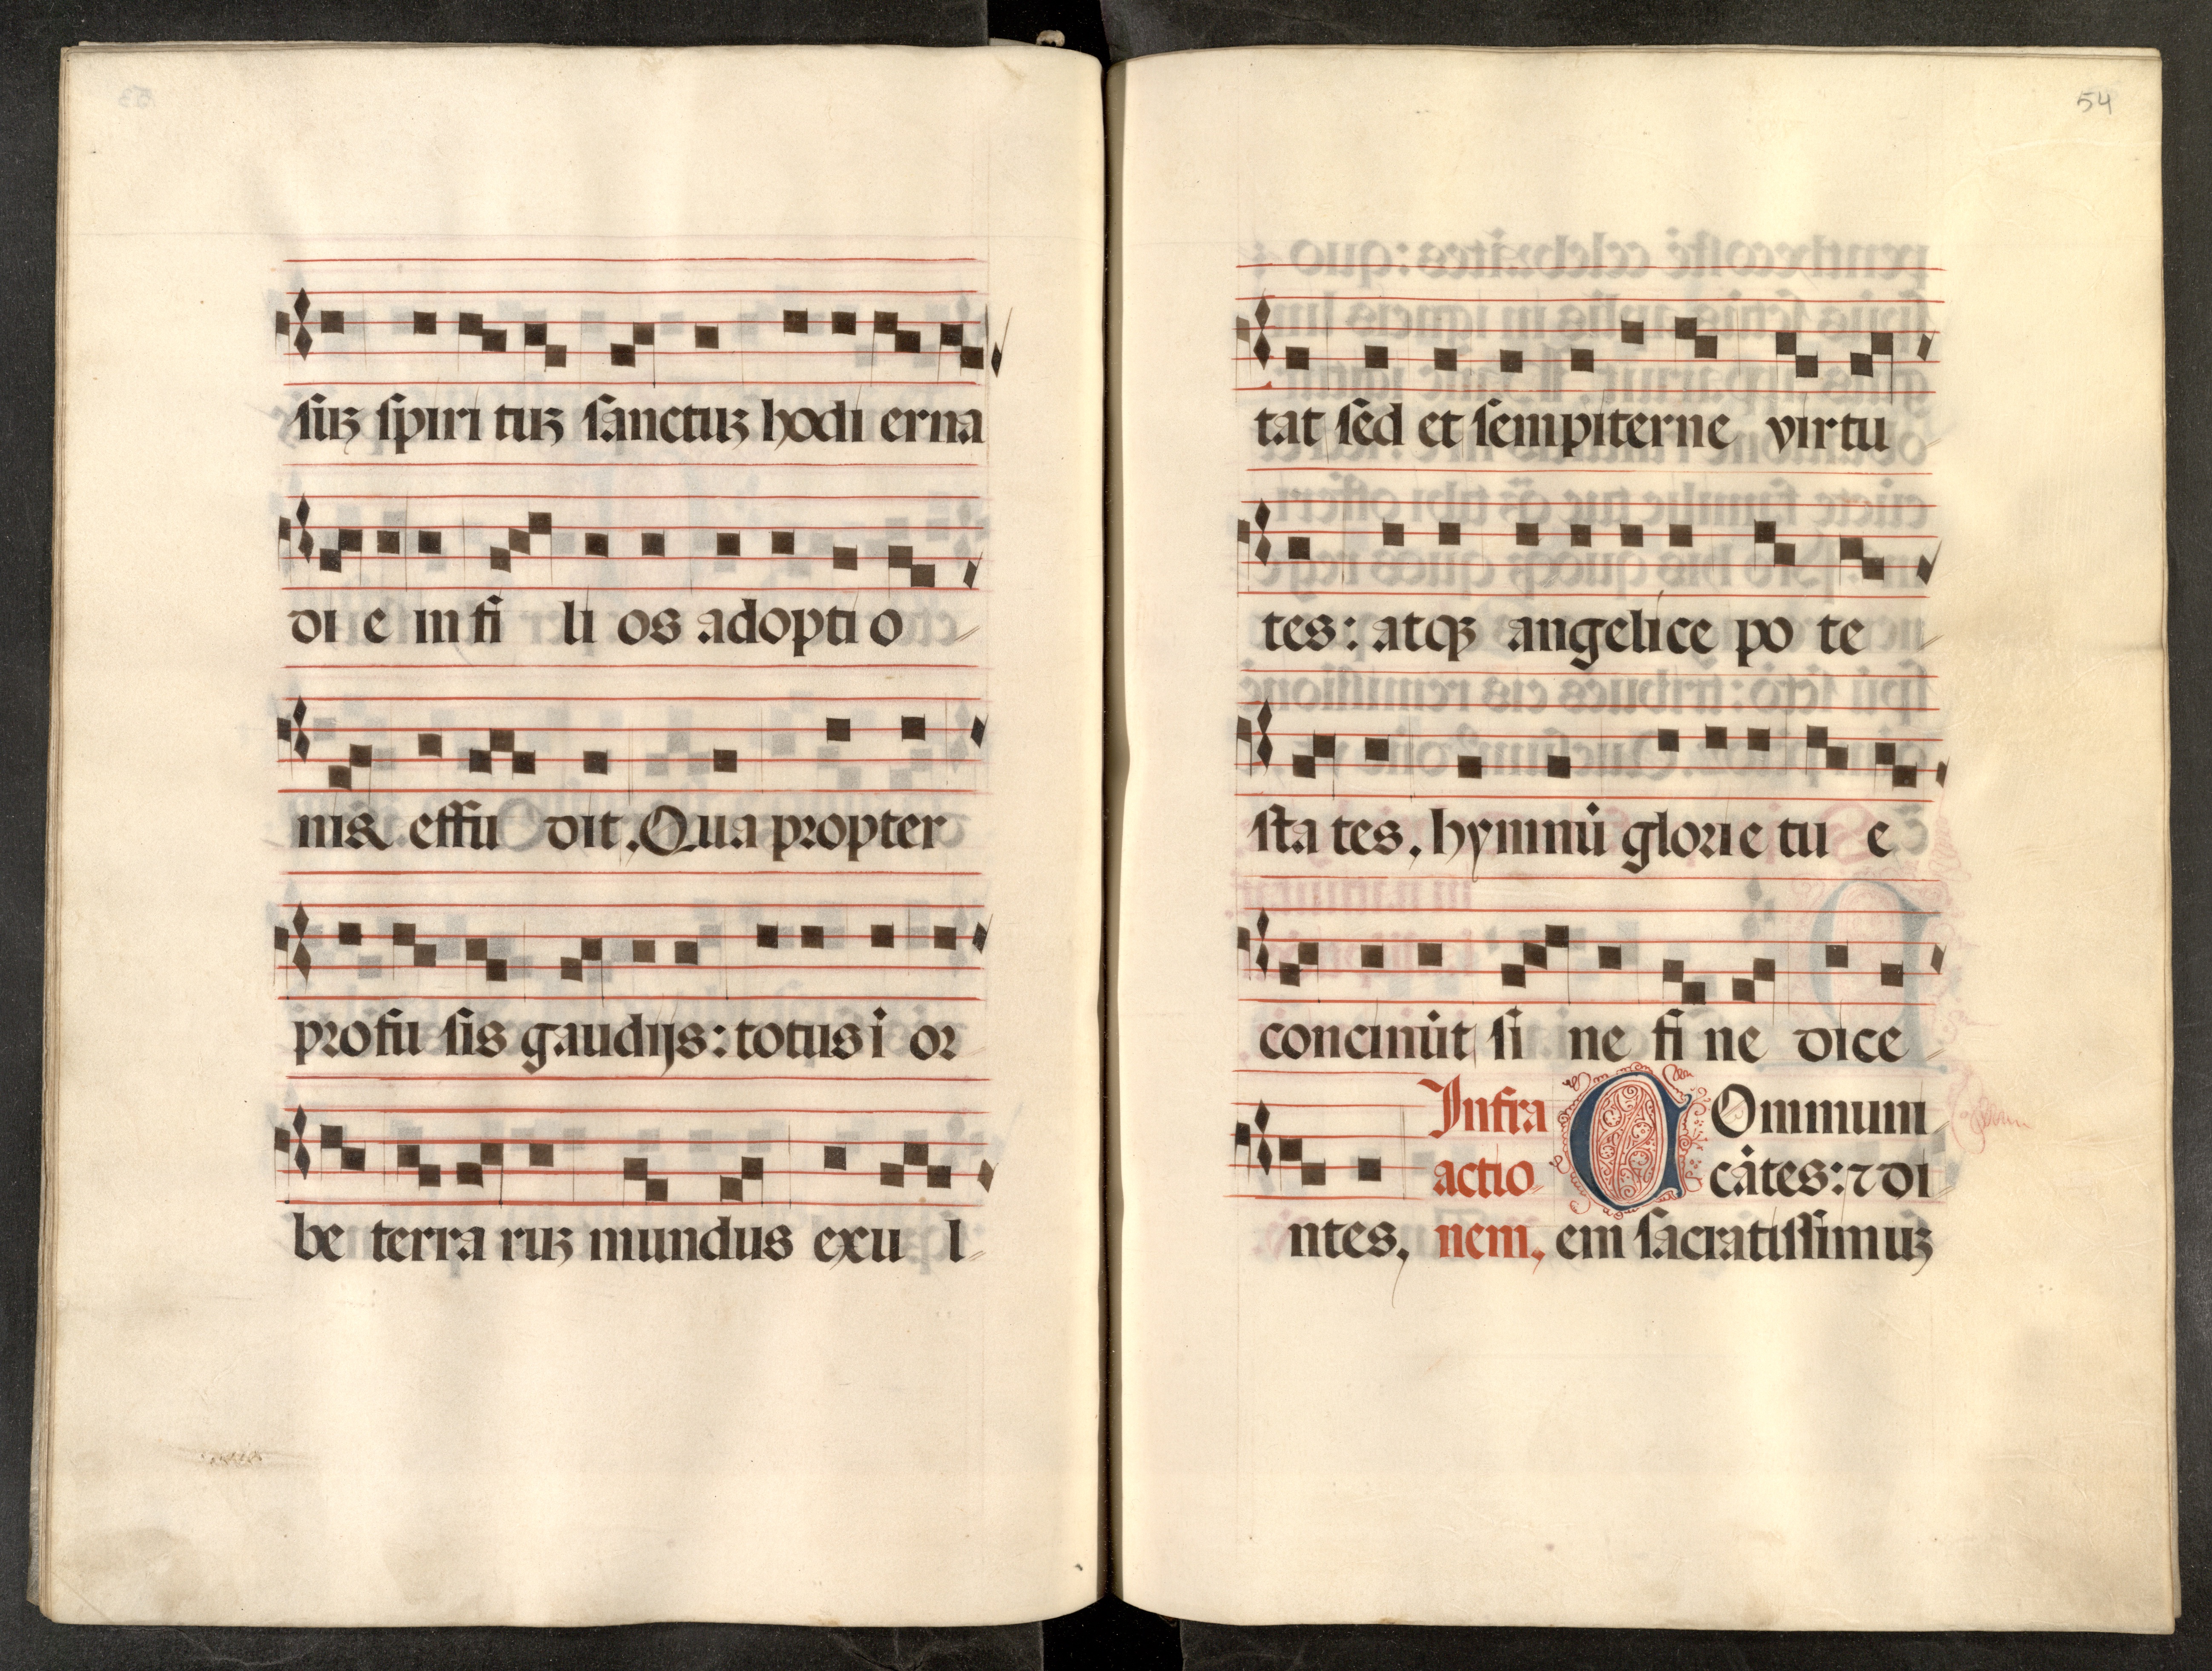 suꝫ spiri tuꝫ sanctuꝫ hodi erna
di e in fi li os adopti o
nis effu dit. Qua propter
profu sis gaudijs: totus i or
be terra ruꝫ mundus exu l
54
tat sed et sempiterne virtu
tes: atqꝫ angelice po te
sta tes. hymnū glorie tu e
concinūt si ne fi ne dice
Infra COmmuni
actio cātes: ⁊ di
ntes, nem, em sacratissimuꝫ